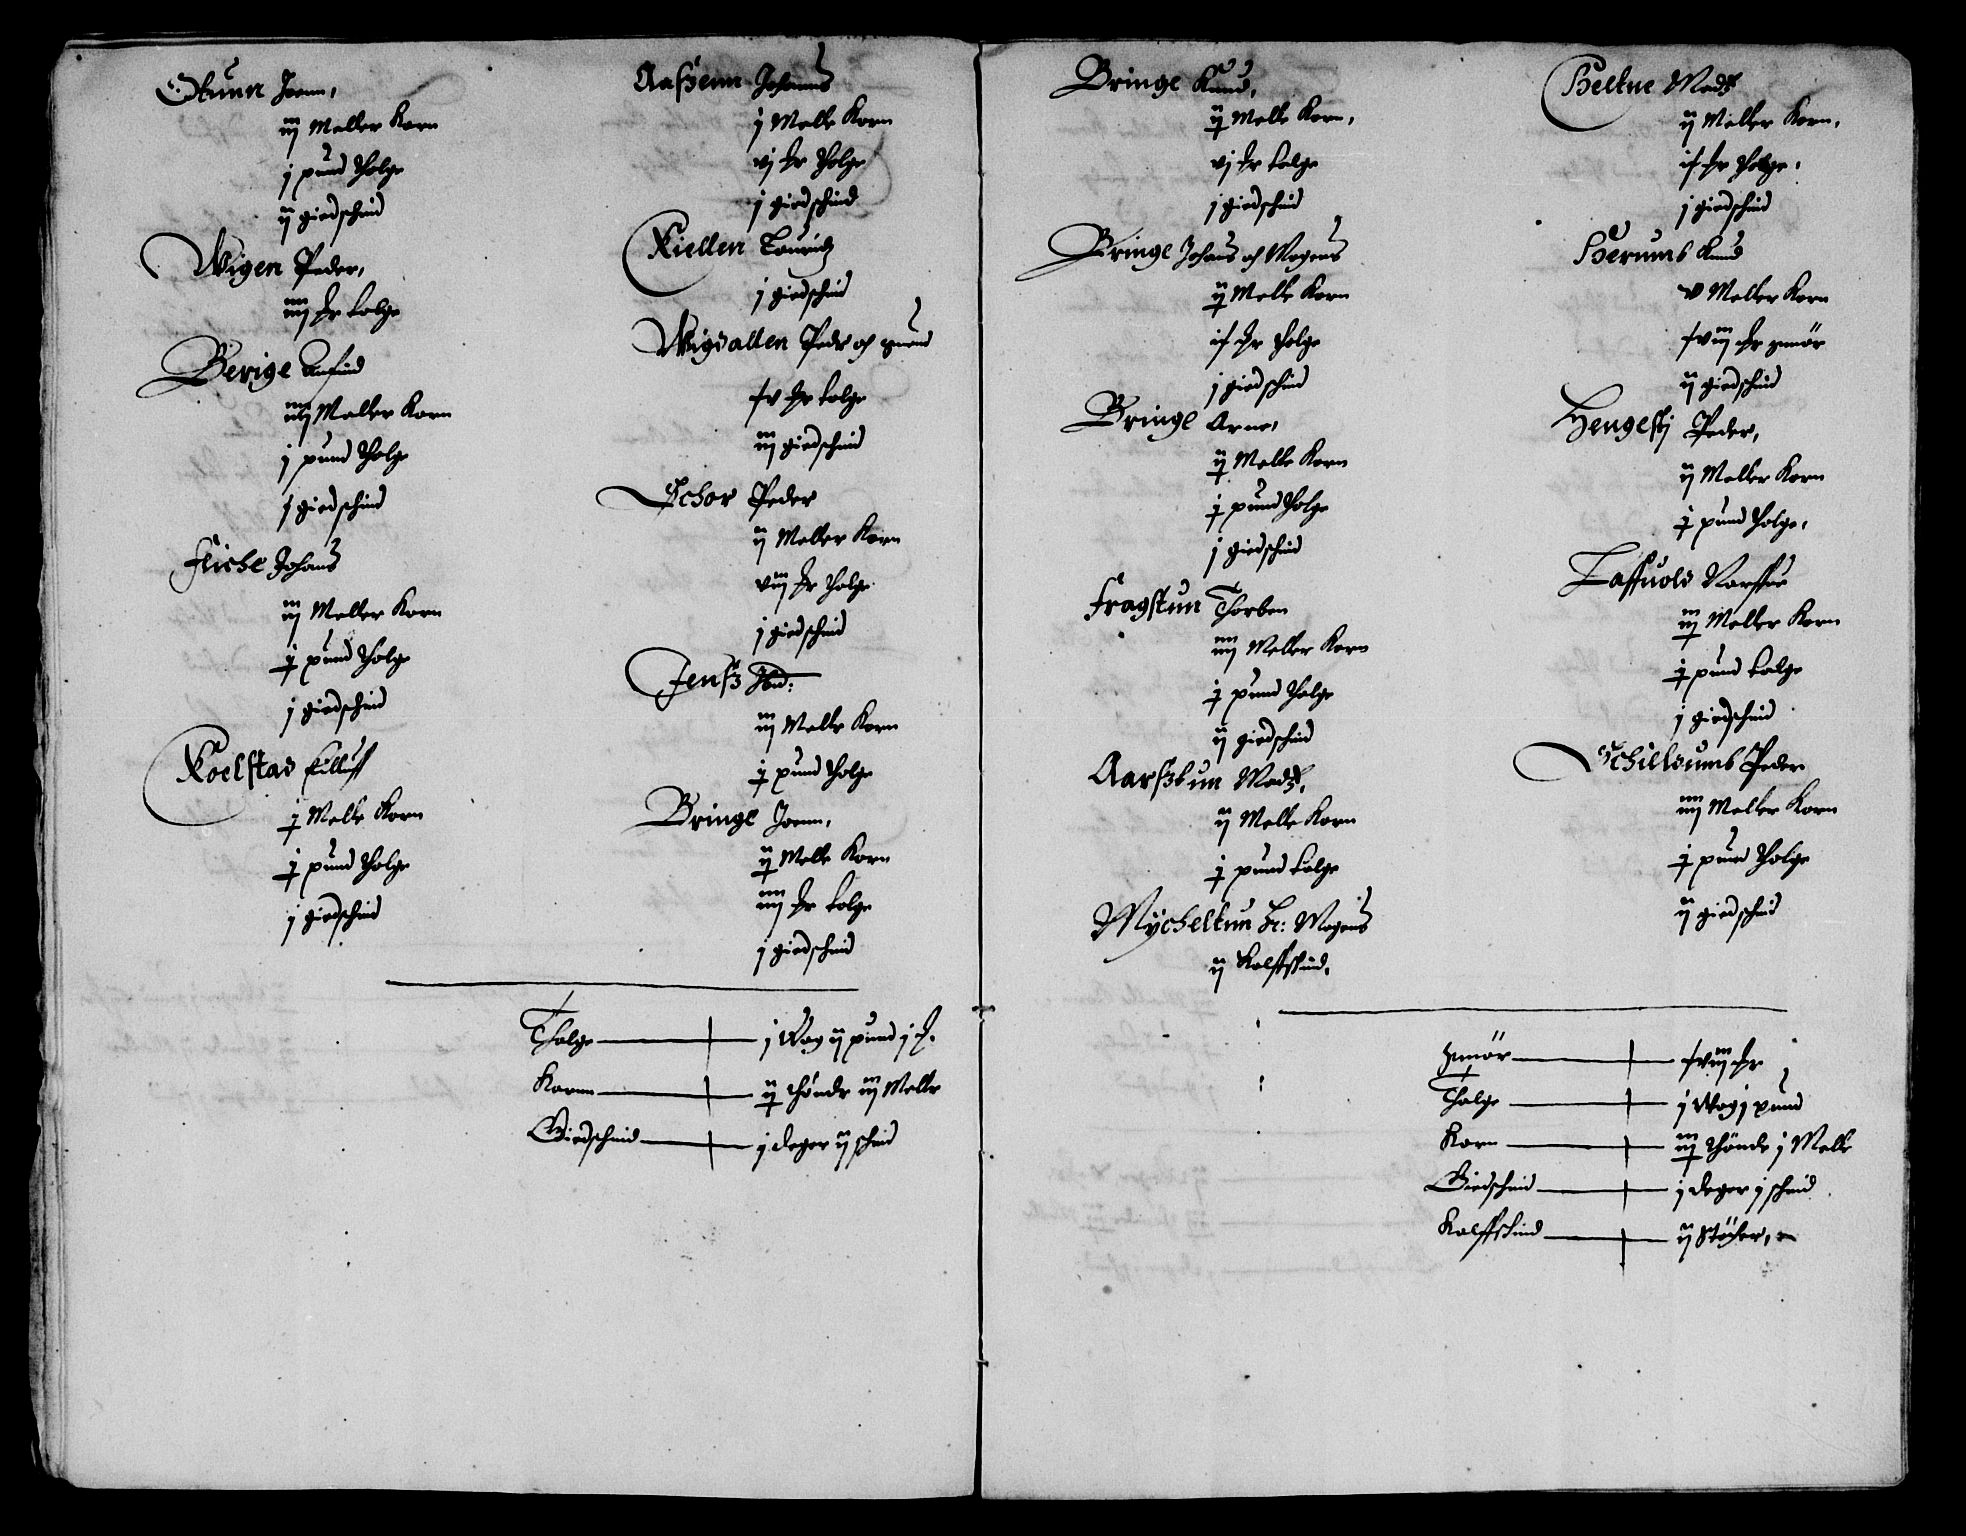 Stunn Joenn,
iij Meller Korn
j pund Thalge
ij giedschind
Wigen Peder,
iiij hr talge
Berige Anfind
iiij Meller Korn
j pund Thalge
j giedschind
Fliche Johans
iij Meller Korn
j pund Thalge
j giedschind
Koelstad Eilluff
j Melle Korn
j pund Thalge
j giedschind
Aaßenn Johanns
j Melle Korn
vj hr Thalge
j giedschind
Kiellen Lauridz
j giedschind
Wigdallen Peder och
xv hr talge
iij giedschind
Schor Peder
ij Meller Korn
viij hr Thalge
j giedschind
Jenß Ibid:
iij Melle Korn
j pund Thalge
Bringe Joenn,
ij Melle Korn
iiij hr talge
j giedschind
Thalge j Wog ij pund j h.
Kornn ij Thønder iij Melle
Giedschind j deger ij schind
Bringe Knud,
ij Melle Korn,
vj hr talge
j giedschind
Bringe Johans och Mogens
ij Melle Korn
ix hr Thalge
j giedschind
Bringe Arne,
ij Melle Korn
j pund Thalge
j giedschind
Fragstun Thorben
iiij Meller Korn
j pund Thalge
ij giedschind
Aarßtun Madz,
ij Melle Korn
j pund talge
Mÿcheltun Hr: Mogens
ij Kalffskind,
Heltne Madz
ij Meller Korn,
ix hr Thalge,
j giedschind
Herumb Knud
v Meller Korn
xviij hr smør
ij giedschind
Hengestj Peder,
ij Meller Korn
j pund Thalge,
Laffuold Narffue
iij Meller Korn
j pund talge
j giedschind
Schieldumb Peder
iiij Meller Korn
j pund Thalge
ij giedschind
Smør xviij hr
Thalge j Wog j pund
Korn iij Thønde j Melle
Giedschind j deger j schind
Kalffschind ij Støcher,